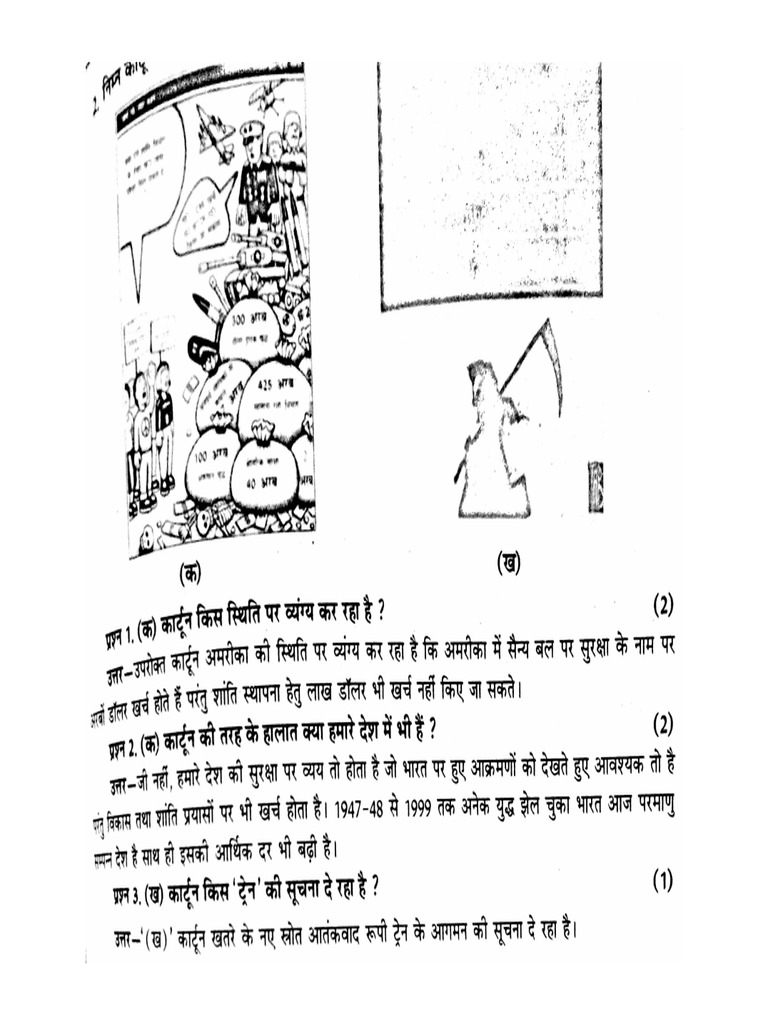 2. निम्न कार्टू
300 अरब
425 अरब
अरब
100 अरब
40 अरब
अरब
(क)
(ख)
प्रश्न 1. (क) कार्टून किस स्थिति पर व्यंग्य कर रहा है ? (2)
उत्तर–उपरोक्त कार्टून अमरीका की स्थिति पर व्यंग्य कर रहा है कि अमरीका में सैन्य बल पर सुरक्षा के नाम पर
अरबों डॉलर खर्च होते हैं परंतु शांति स्थापना हेतु लाख डॉलर भी खर्च नहीं किए जा सकते।
प्रश्न 2. (क) कार्टून की तरह के हालात क्या हमारे देश में भी हैं ? (2)
उत्तर–जी नहीं, हमारे देश की सुरक्षा पर व्यय तो होता है जो भारत पर हुए आक्रमणों को देखते हुए आवश्यक तो है
परंतु विकास तथा शांति प्रयासों पर भी खर्च होता है। 1947-48 से 1999 तक अनेक युद्ध झेल चुका भारत आज परमाणु
सम्पन्न देश है साथ ही इसकी आर्थिक दर भी बढ़ी है।
प्रश्न 3. (ख) कार्टून किस ‘ट्रेन’ की सूचना दे रहा है ? (1)
उत्तर–‘(ख)’ कार्टून खतरे के नए स्रोत आतंकवाद रूपी ट्रेन के आगमन की सूचना दे रहा है।